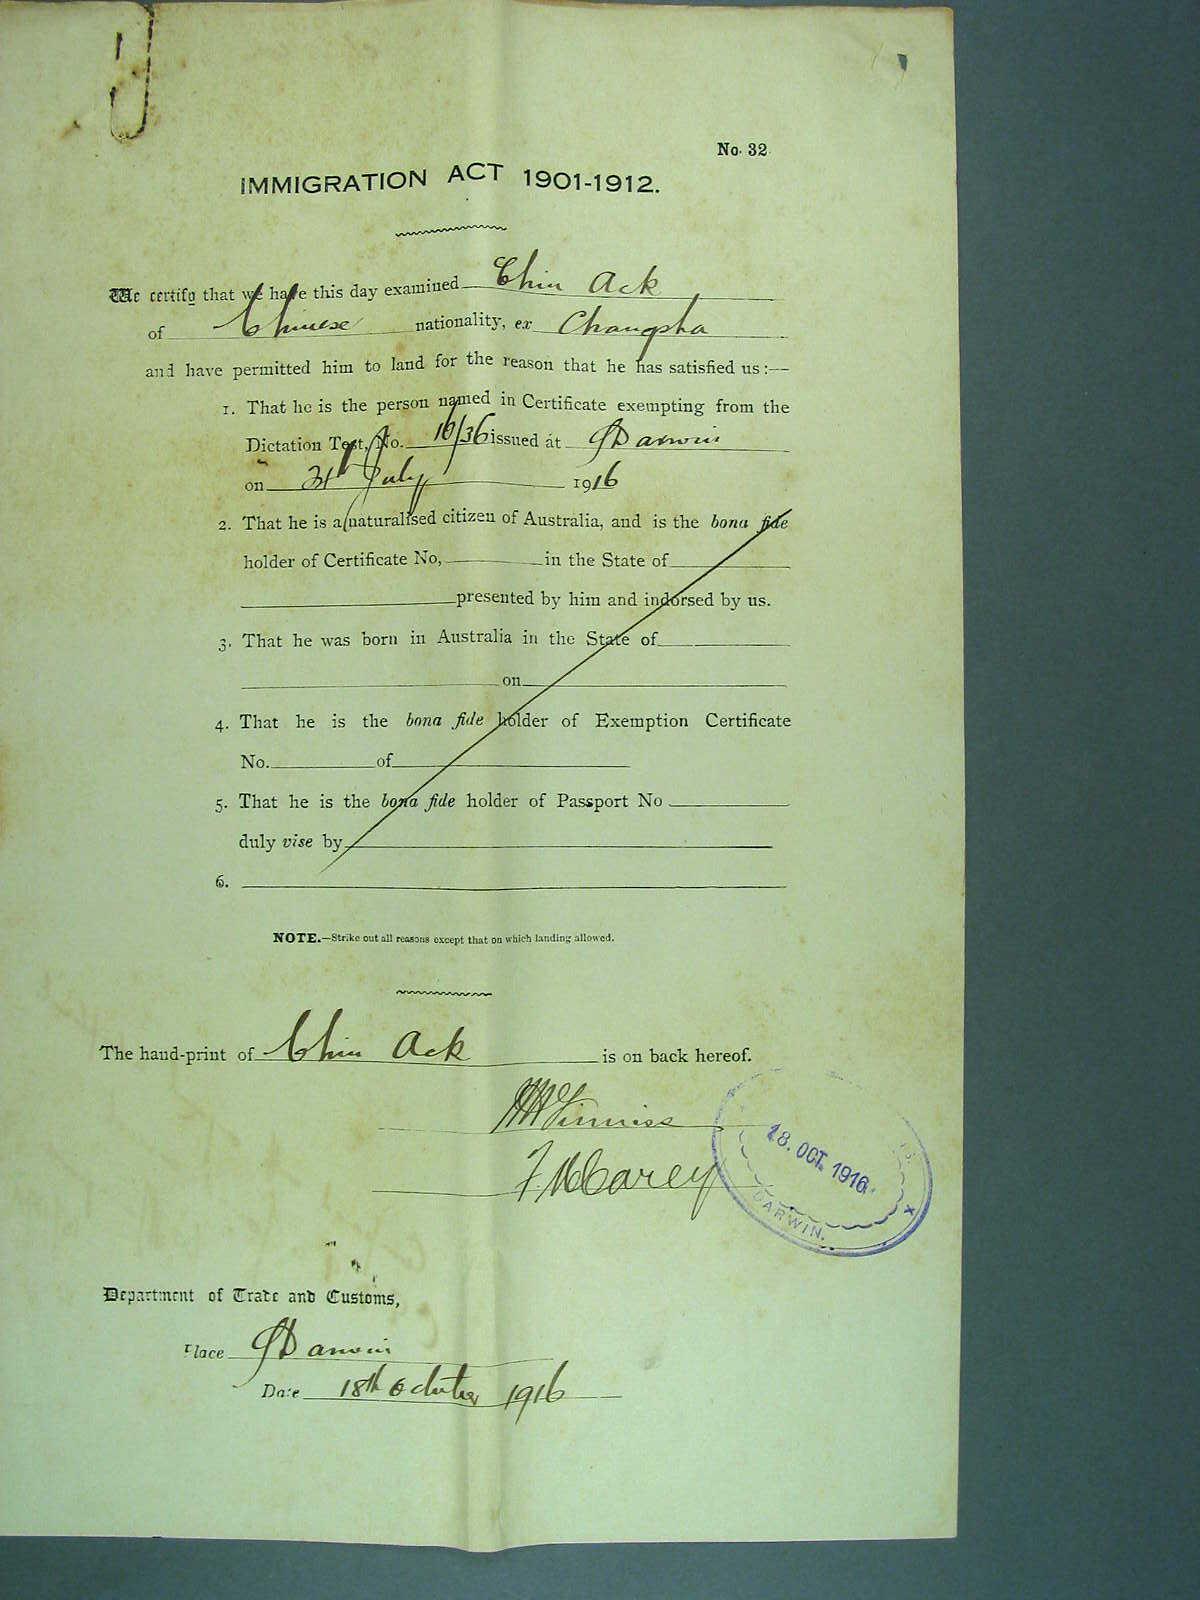 No. 32.
IMMIGRATION ACT 1901-1912.
We certify that we have this day examined Chin Ack
of Chinese nationality, ex Changsha
and have permitted him to land for the reason that he has satisfied us:—
1. That he is the person named in Certificate exempting from the
Dictation Test, No. 16/36 issued at Darwin
on July 1916
2. That he is a naturalised citizen of Australia, and is the bona fide
holder of Certificate No, in the State of
presented by him and indorsed by us.
3. That he was born in Australia in the State of
on
4. That he is the bona fide holder of Exemption Certificate
No. of
5. That he is the bona fide holder of Passport No
duly vise by
6.
NOTE.—Strike out all reasons except that on which landing allowed.
The hand-print of Chin Ack is on back hereof.
18. OCT. 1916
DARWIN.
Department of Trade and Customs,
Place Darwin
Date 18th October 1916